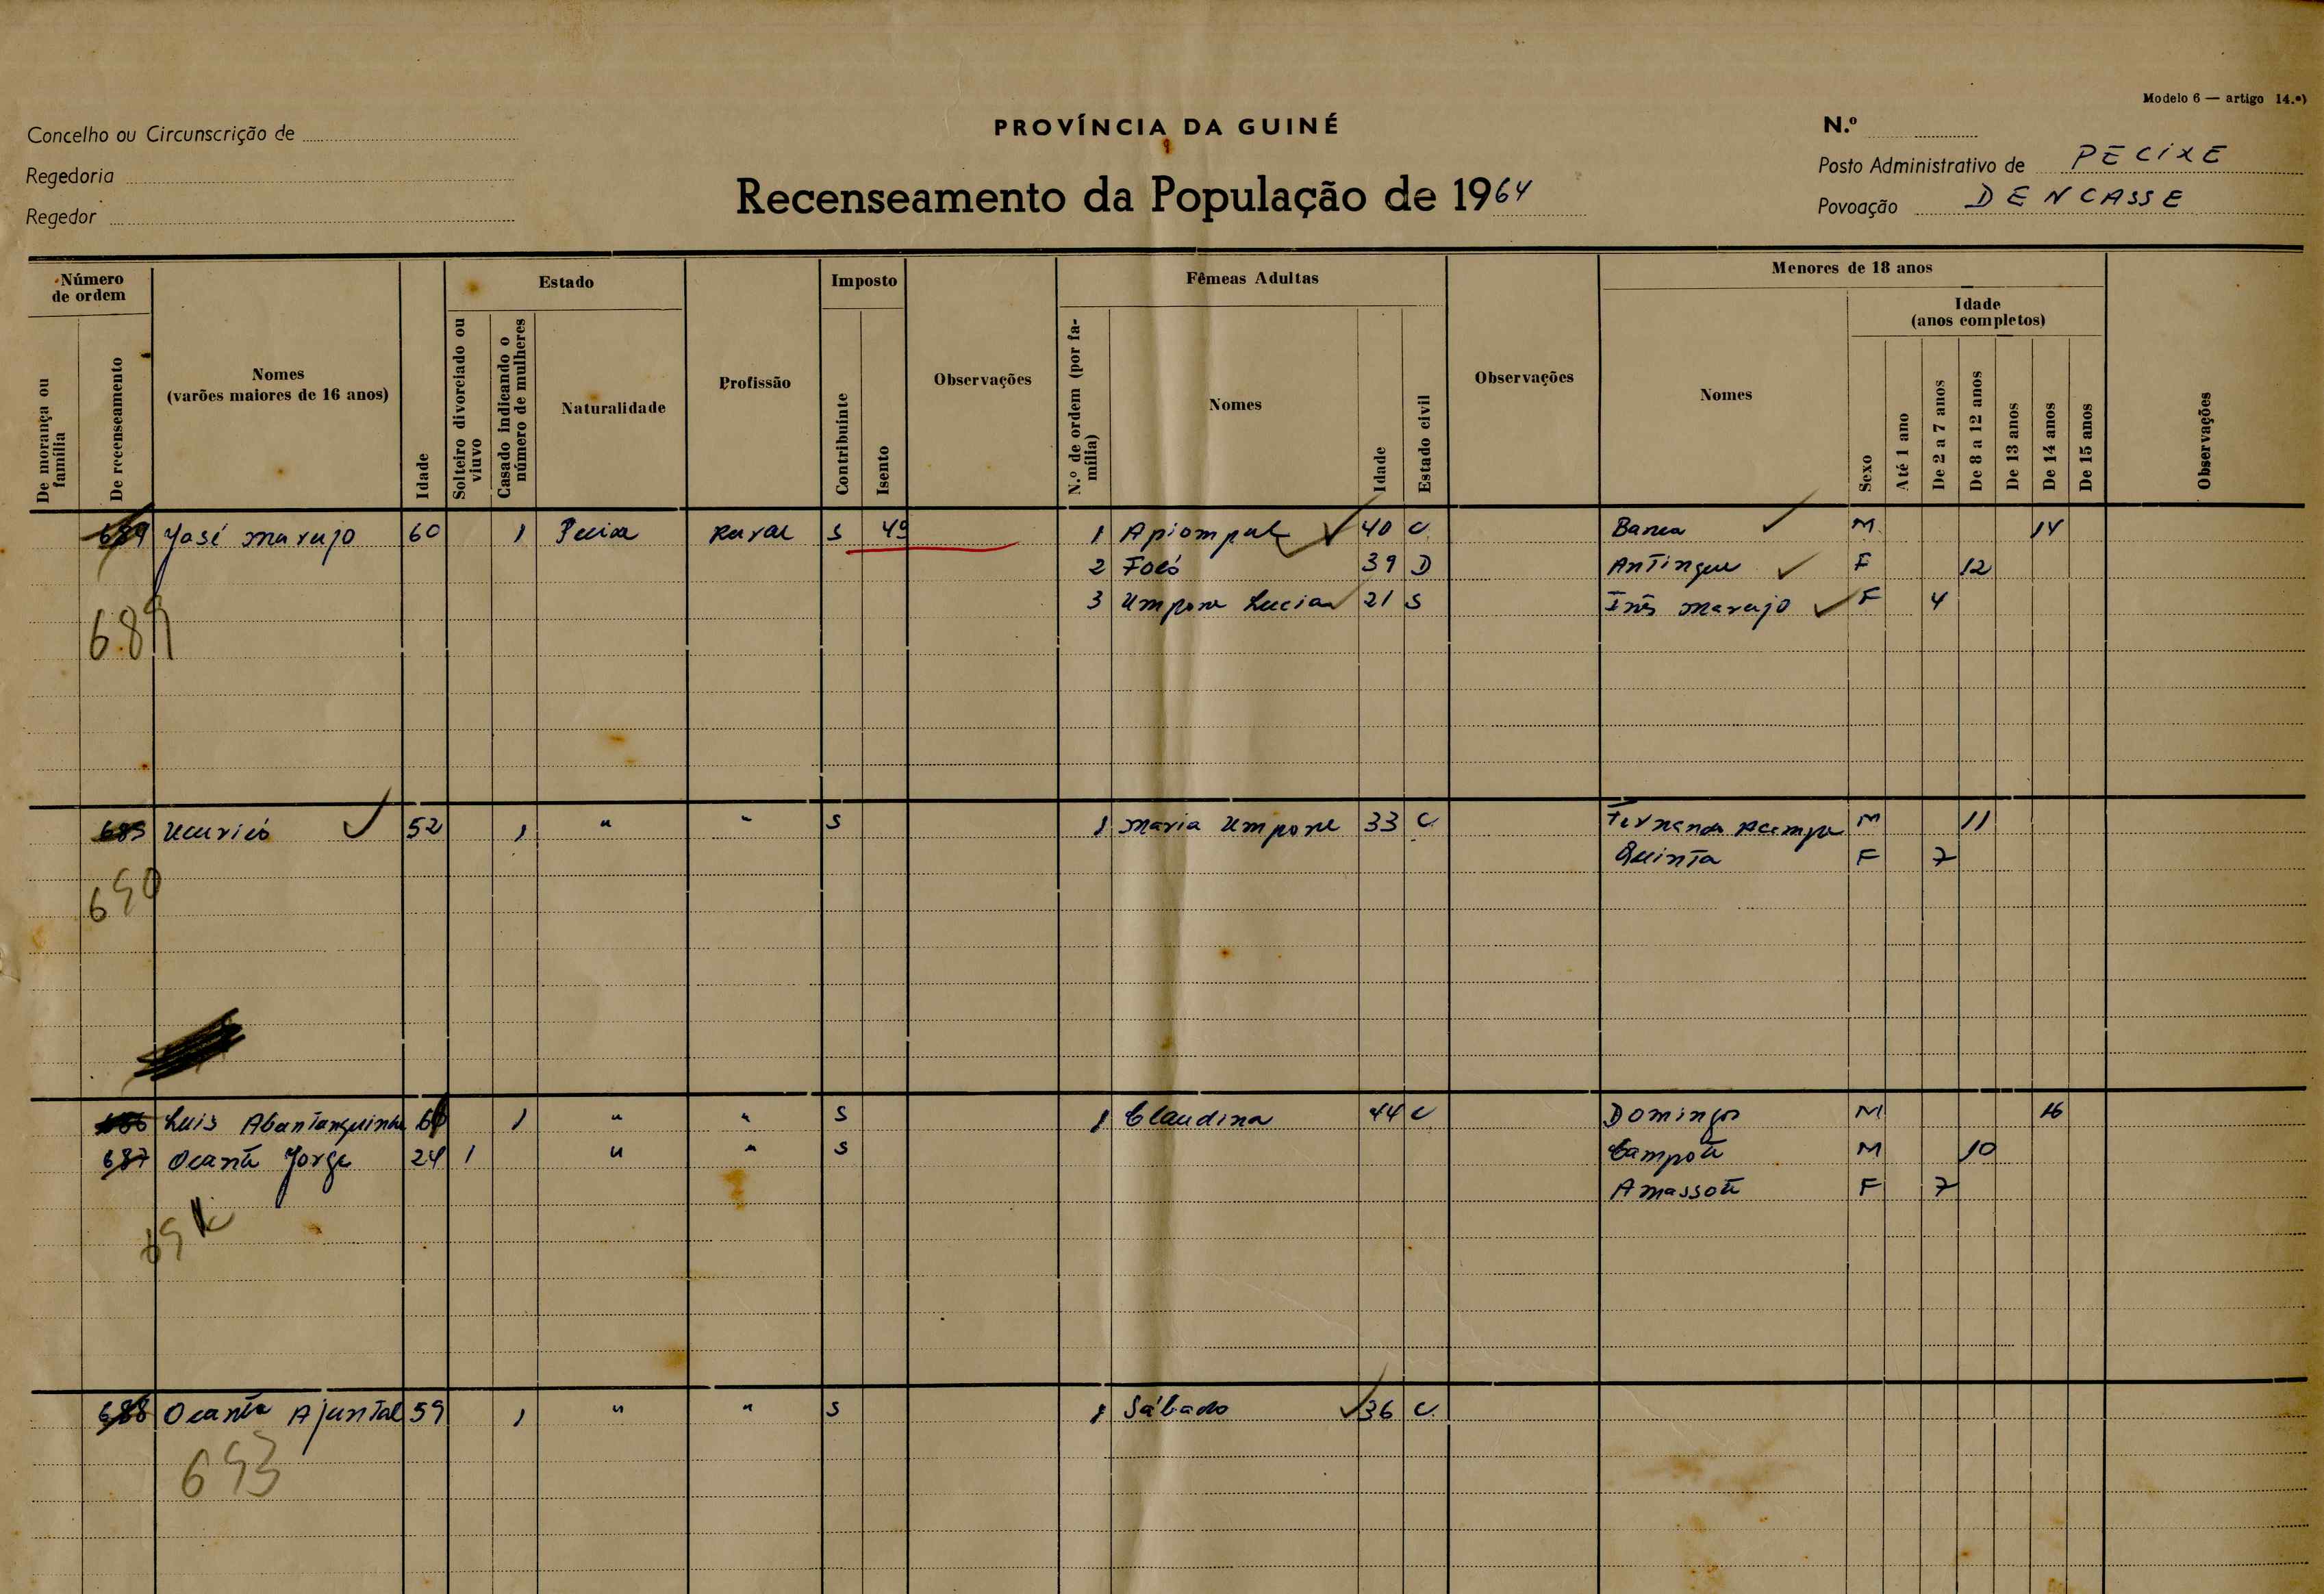 Modelo 6 — artigo 14.º)
Concelho ou Circunscrição de
PROVÍNCIA DA GUINÉ
N.º
Regedoria
Posto Administrativo de PECIXE
Regedor
Recenseamento da População de 1964
Povoação DENCASSE
Número de ordem
Estado
Imposto
Fêmeas Adultas
Menores de 18 anos
Idade
(anos completos)
De morança ou família
De recenseamento
Nomes
(varões maiores de 16 anos)
Idade
Solteiro divorciado ou viuvo
Casado indicando o número de mulheres
Naturalidade
Profissão
Contribuinte
Isento
Observações
N.º de ordem (por família)
Nomes
Idade
Estado civil
Observações
Nomes
Sexo
Até 1 ano
De 2 a 7 anos
De 8 a 12 anos
De 13 anos
De 14 anos
De 15 anos
Observações
José Marujo 60 1 Rural S 49 1 40 C Banca M 14
2 Focó 39 D Antingue F 12
3 Umpone Lucia 21 S Inês Marujo F 4
689
52 1 " " S 1 Maria Umpone 33 C Fernando M 11
Quinta F 7
690
Luis Abantanguinhe 1 " " S 1 Claudina 44 C Domingos M 16
687 Ocante Jorge 24 1 " " S Campote M 10
Amassote F 7
688 Ocante Ajuntal 59 1 " " S 1 Sábado 36 C
693